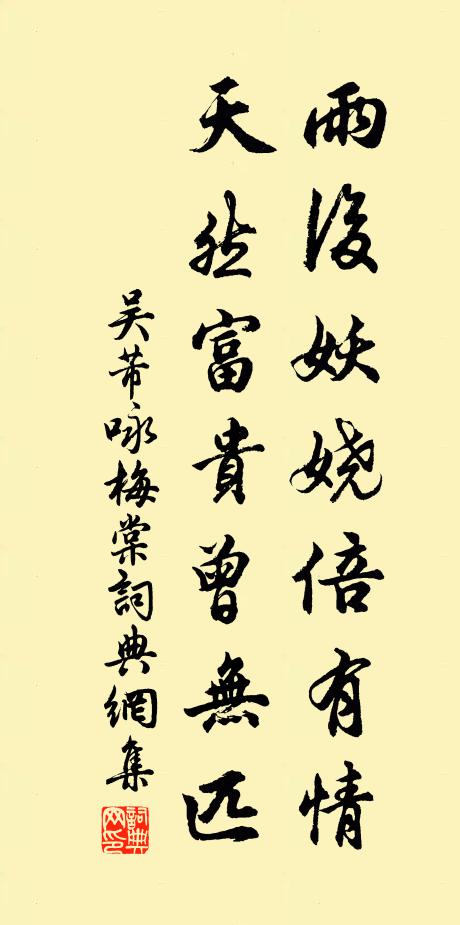 雨後妖嬈倍有情
天然富貴曾無匹
吴芾咏梅棠詞典網集
詞典网印